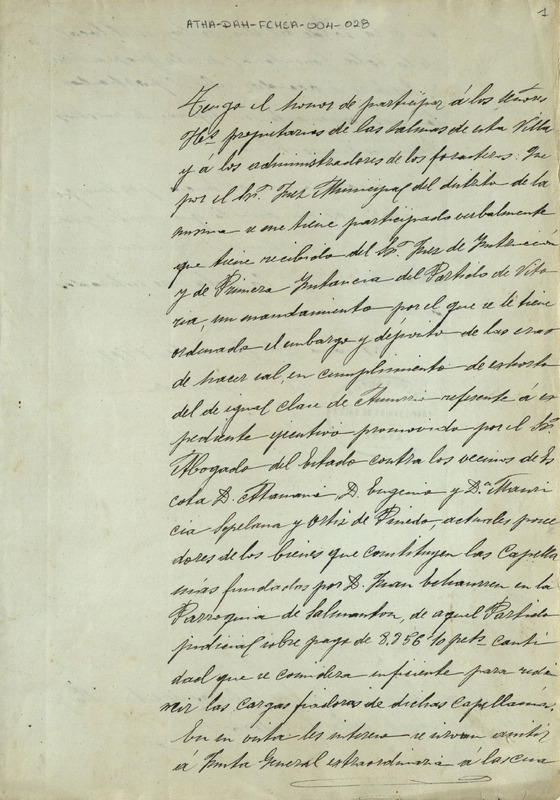 ATHA-DAH-FCHSA-004-028
1
Tengo el honor de participar á los Señores
propietarios de las Salinas de esta Villa
y á los administradores de los forasteros: Que
por el Sr. Juez Municipal del distrito de la
misma se me tiene participado verbalmente
que tiene recibido del Sr. Juez de Instrucción
y de Primera Instancia del Partido de Vito
ria, un mandamiento por el que se le tiene
ordenado el embargo y depósito de las eras
de hacer sal, en cumplimiento de exhorto
del de igual clase de Amurrio referente á ex
pediente ejecutivo promovido por el Sr.
Abogado del Estado contra los vecinos de Es
cota D. D. Eugenio y D.ª Mauri
cia Sopelana y Ortiz de Pinedo actuales posee
dores de los bienes que constituyen las Capella
nías fundadas por D. Juan en la
Parroquia de Salmanton, de aquel Partido
judicial sobre pago de 8.256 10 pets canti
dad que se considera suficiente para redi
mir las cargas piadosas de dichas capellanías.
En su vista les intereso se sirvan asistir
á Junta General extraordinaria á las cua